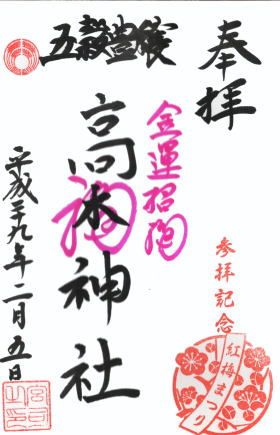 奉拝
金運招福
五穀豊饒
高木神社
平成廿九年二月五日
参拝記念
紅梅まつり
宮司之印